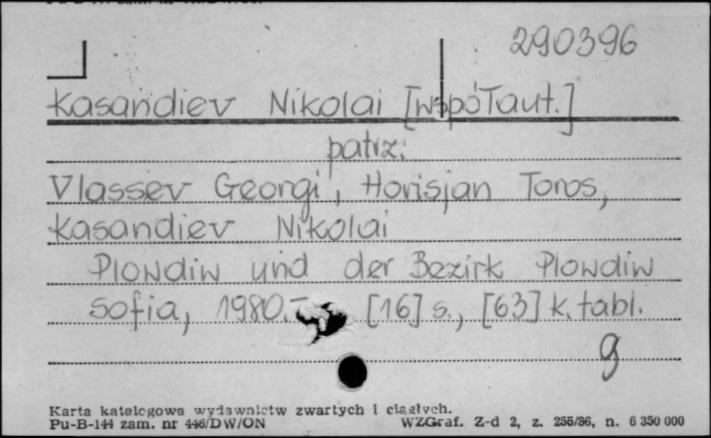 290396
Kasandiev Nikolai [współaut.]
patrz:
Vlassev Georgi, Horisjan Toros,
Kasandiev Nikolai
Plowdiw und der Bezirk Plowdiw
Sofia, 1980.- [16] s., [63] k. tabl.
g
Karta katalogowa wydawnictw zwartych i ciągłych.
Pu-B-144 zam. nr 446/DW/ON WZGraf. Z-d 2, z. 256/86, n. 6 350 000